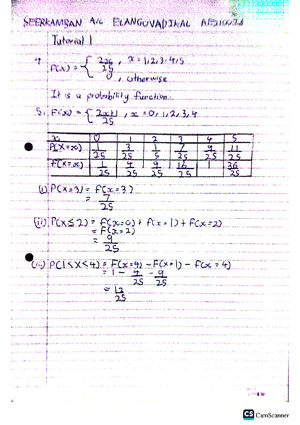 SEERKAMBAN A/L ELANGUVADIKAL
Tutorial 1
4. F(x) = { 2x/25 , x = 1,2,3,4,5
, otherwise
It is a probability function.
5. F(x) = { 2x+1/25 , x = 0,1,2,3,4
x 0 1 2 3 4 5
P(X=x) 1/25 3/25 1/5 7/25 9/25 11/25
F(X=x) 1/25 4/25 9/25 16/25 1 36/25
(i) P(X=3) = f(x=3)
= 7/25
(ii) P(X≤2) = f(x=0) + f(x=1) + f(x=2)
= F(x=2)
= 9/25
(iii) P(1<X<4) = F(x=4) - F(x=1) - f(x=4)
= 1 - 4/25 - 9/25
= 12/25
CS CamScanner